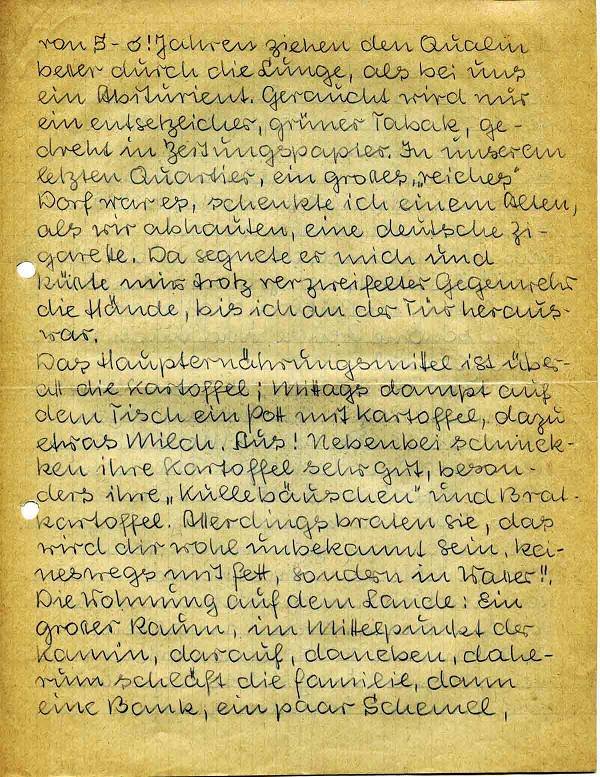 von 5-6! Jahren ziehen den Qualm
besser durch die Lunge, als bei uns
ein Abiturient. Geraucht wird nur
ein entsetzlicher, grüner Tabak, ge-
dreht in Zeitungspapier. In unserem
letzten Quartier, ein großes, „reiches"
Dorf war es, schenkte ich einem Alten,
als wir abhauten, eine deutsche Zi-
garette. Da segnete er mich und
küßte mir trotz verzweifelter Gegenwehr
die Hände, bis ich an der Tür heraus-
war.
Das Haupternährungsmittel ist über-
all die Kartoffel; Mittags dampft auf
dem Tisch ein Pott mit Kartoffel, dazu
etwas Milch. Aus! Nebenbei schmek-
ken ihre Kartoffel sehr gut, beson-
ders ihre „Kullebäuschen" und Brat-
kartoffel. Allerdings braten sie, das
wird dir wohl unbekannt sein, kei-
neswegs mit Fett, sondern in Wasser!!.
Die Wohnung auf dem Lande: Ein
großer Raum, im Mittelpunkt der
Kamin, darauf, daneben, dahe-
rum schläft die Familie, dann
eine Bank, ein paar Schemel,